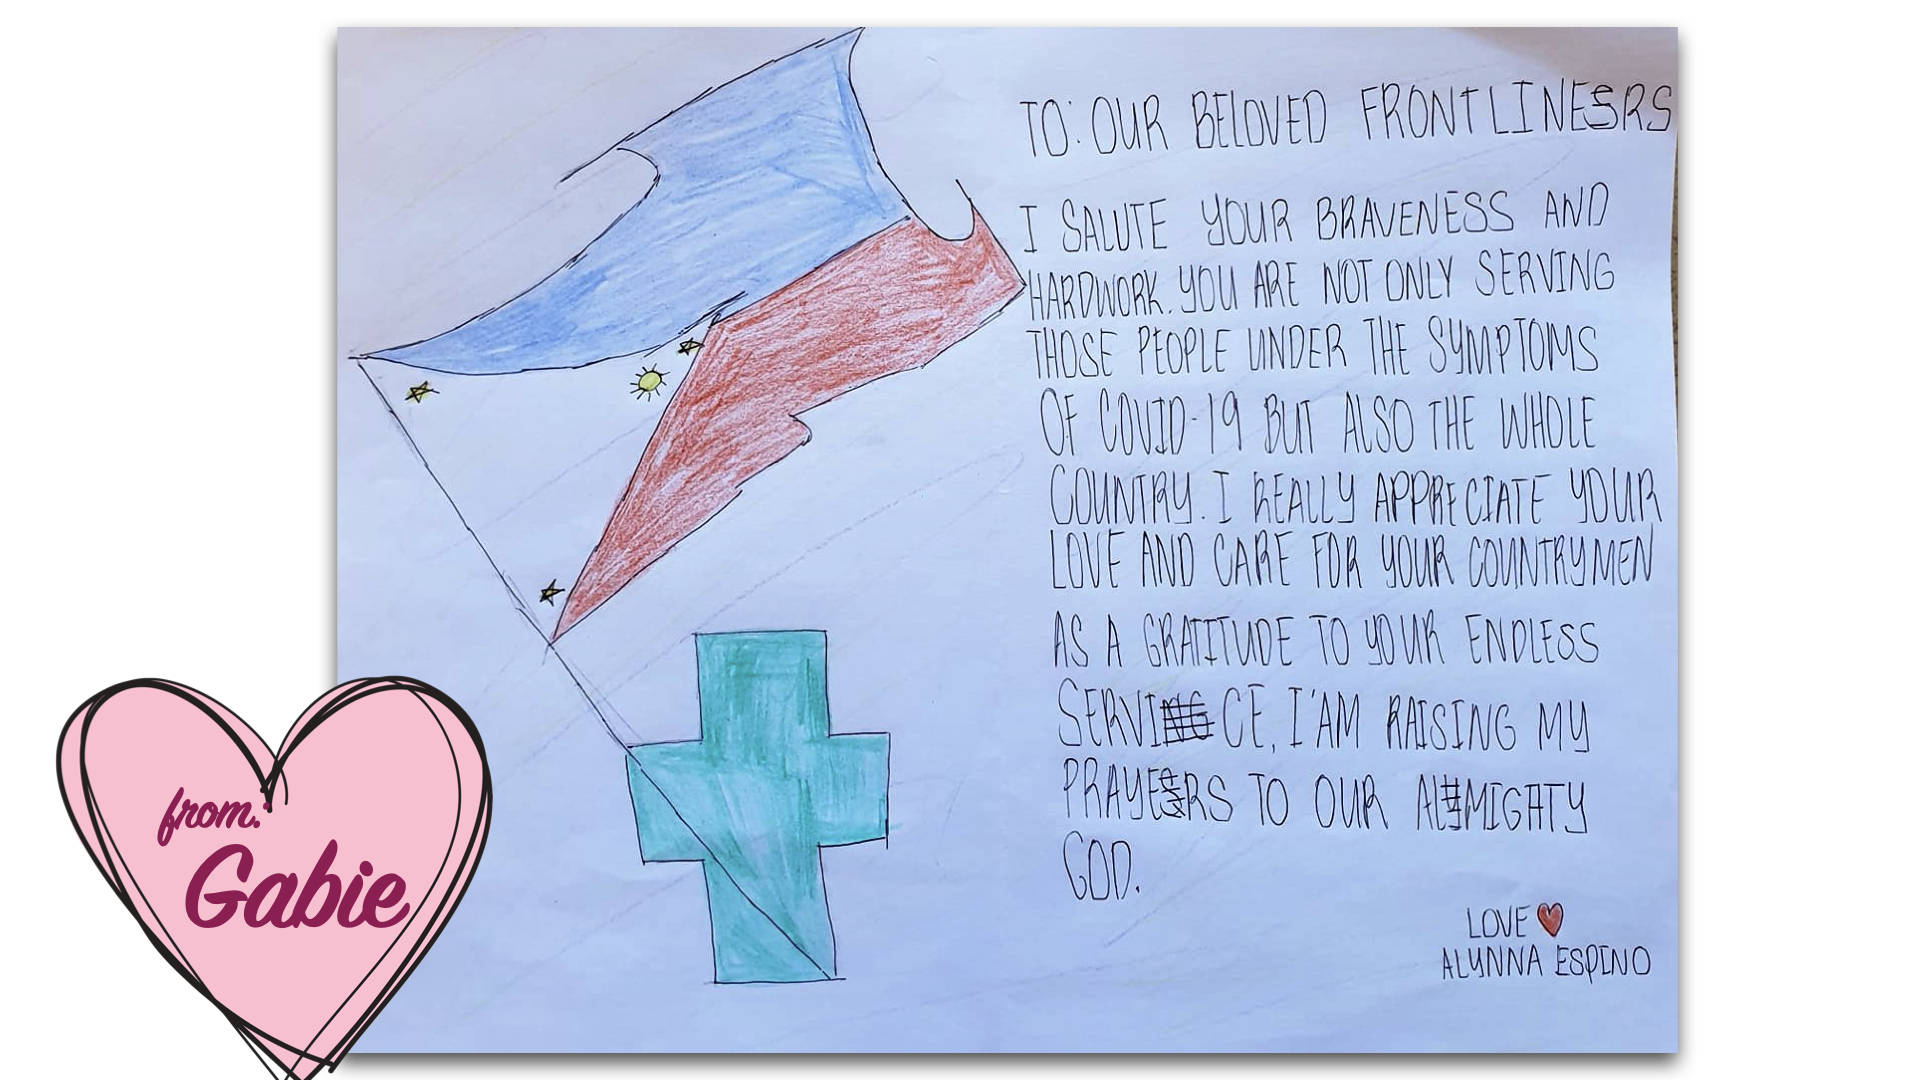 TO: OUR BELOVED FRONTLINERS
I SALUTE YOUR BRAVENESS AND
HARDWORK. YOU ARE NOT ONLY SERVING
THOSE PEOPLE UNDER THE SYMPTOMS
OF COVID-19 BUT ALSO THE WHOLE
COUNTRY. I REALLY APPRECIATE YOUR
LOVE AND CARE FOR YOUR COUNTRYMEN
AS A GRATITUDE TO YOUR ENDLESS
SERVICE, I'AM RAISING MY
PRAYERS TO OUR ALMIGHTY
GOD.
LOVE
ALYNNA ESPINO
from:
Gabie